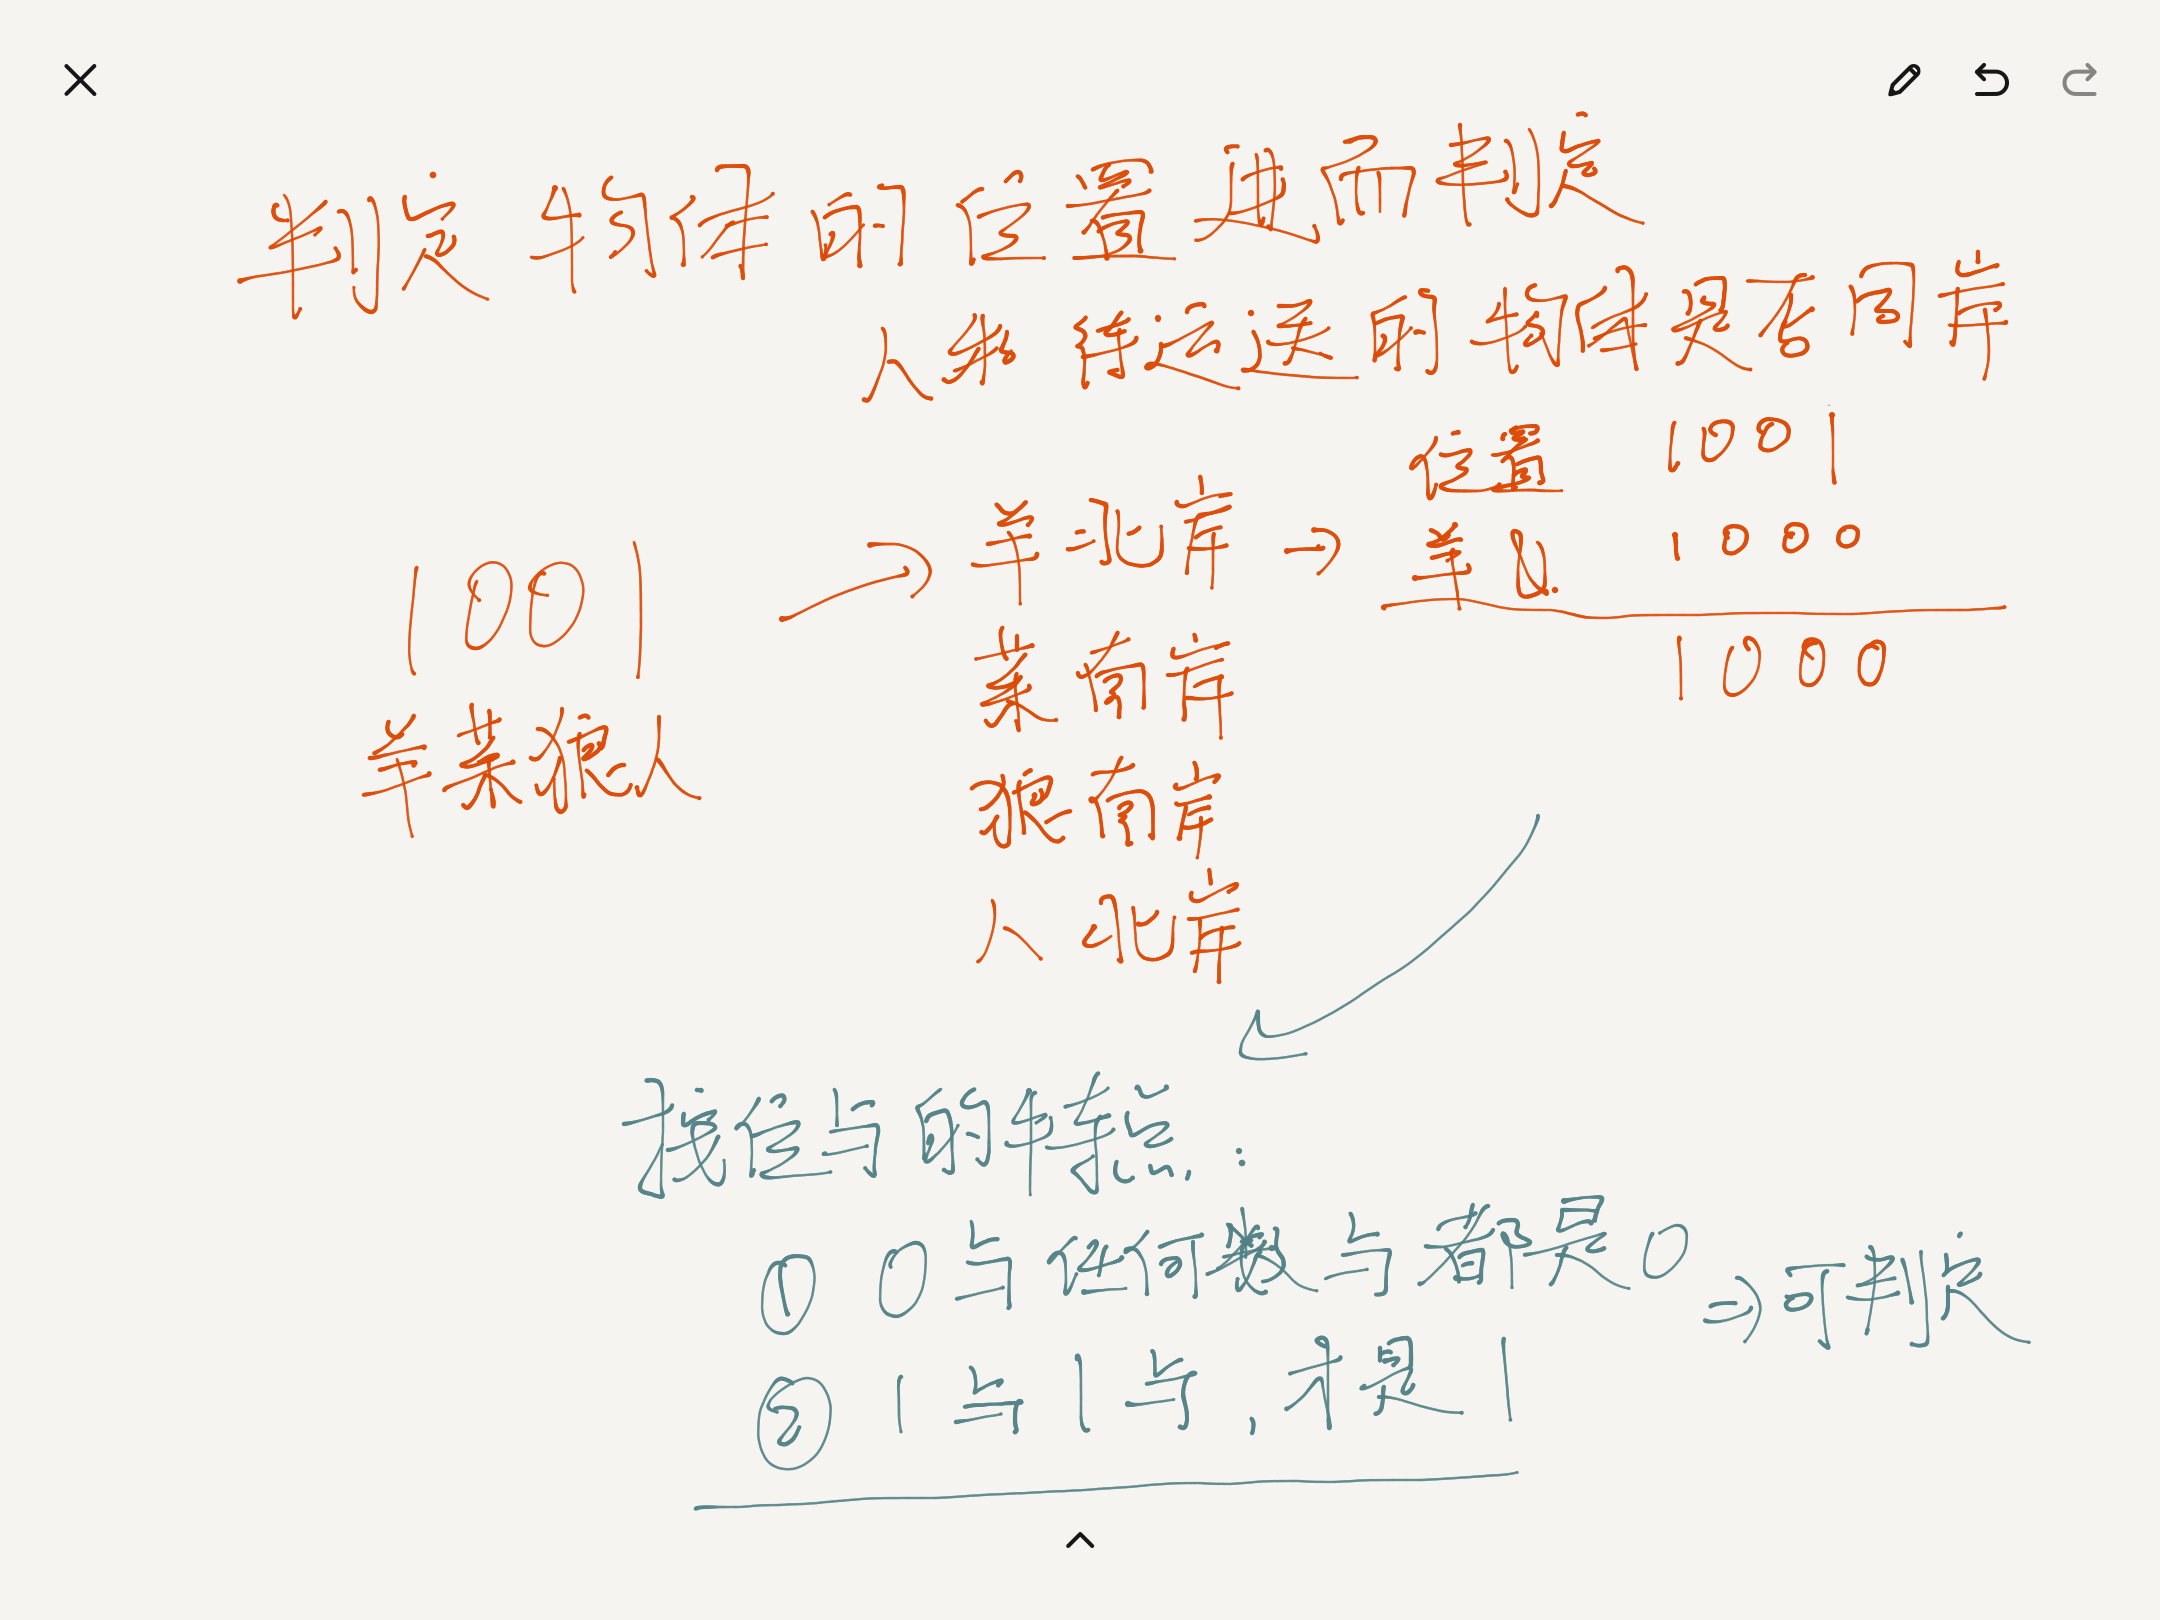 判定物体的位置 进而判定
人和待运送的物体是否同岸
1001
羊菜狼人
羊 北岸
菜 南岸
狼 南岸
人 北岸
位置 1001
羊 &. 1000
1000
按位与的特点:
① 0与任何数与都是0
② 1与1与,才是1
⇒可判定